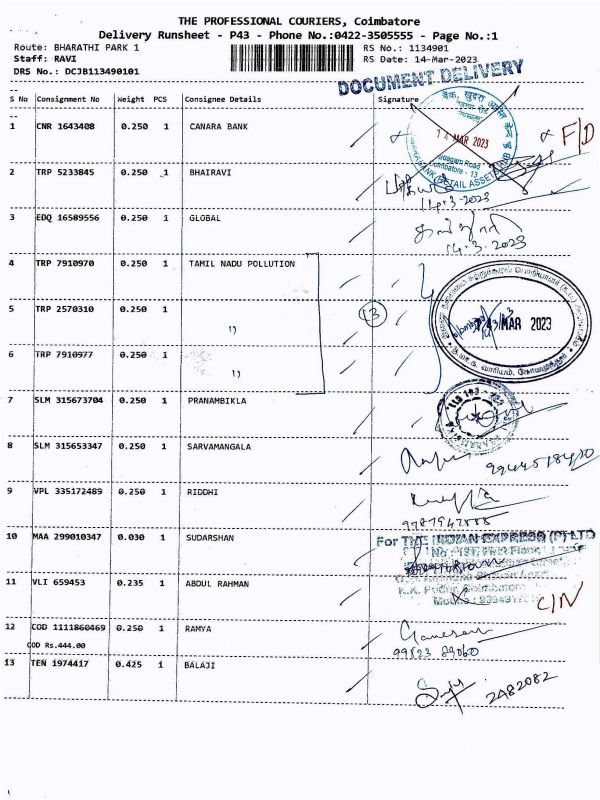 THE PROFESSIONAL COURIERS, Coimbatore
Delivery Runsheet - P43 - Phone No.:0422-3505555 - Page No.:1
Route: BHARATHI PARK 1 RS No.: 1134901
Staff: RAVI RS Date: 14-Mar-2023
DRS No.: DCJB113490101
DOCUMENT DELIVERY
S No Consignment No Weight PCS Consignee Details Signature
1 CNR 1643408 0.250 1 CANARA BANK
14 MAR 2023
F/D
2 TRP 5233845 0.250 1 BHAIRAVI
14-3-2023
3 EDQ 16589556 0.250 1 GLOBAL
14.3.2023
4 TRP 7910970 0.250 1 TAMIL NADU POLLUTION
5 TRP 2570310 0.250 1 " 13
14 MAR 2023
6 TRP 7910977 0.250 1 "
7 SLM 315673704 0.250 1 PRANAMBIKLA
8 SLM 315653347 0.250 1 SARVAMANGALA
9 VPL 335172489 0.250 1 RIDDHI
10 MAA 299010347 0.030 1 SUDARSHAN
For THE INDIAN EXPRESS (P) LTD
11 VLI 659453 0.235 1 ABDUL RAHMAN
C/N
12 COD 1111860469 0.250 1 RAMYA
Ganesan
COD Rs.444.00
99523 89060
13 TEN 1974417 0.425 1 BALAJI
2482082